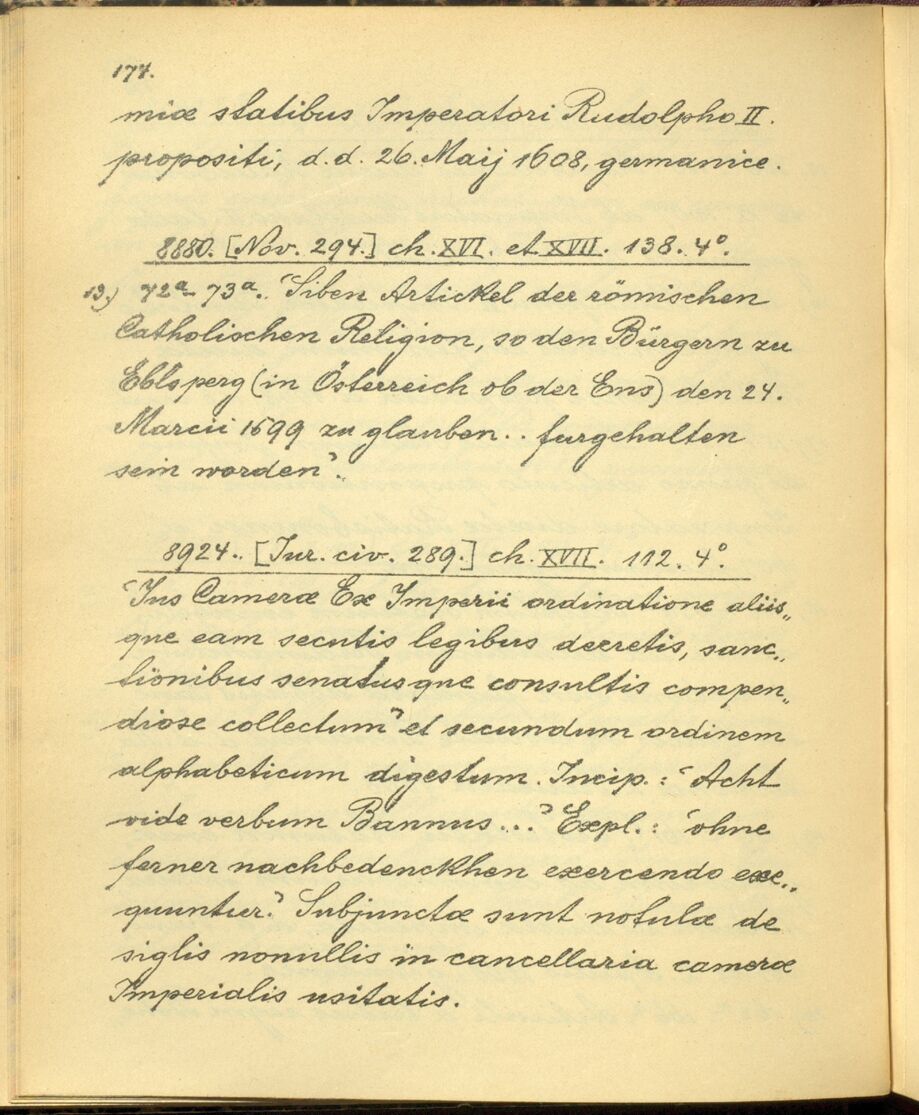 177.
miæ statibus Imperatori Rudolpho II.
propositi, d. d. 26. Maij 1608, germanice.
8880. [Nov. 294.] ch. XVI. et XVII. 138. 4°.
13.) 72a- 73a. "Siben Artickel der römischen
Catholischen Religion, so den Bürgern zu
Eblsperg (in Österreich ob der Ens) den 24.
Marcii 1599 zu glauben.. furgehalten
sein worden".
8924.. [Iur. civ. 289.] ch. XVII. 112. 4°.
"Ius Cameræ Ex Imperii ordinatione aliis„
que eam secutis legibus decretis, sanc„
tionibus senatusque consultis compen„
diose collectum" et secundum ordinem
alphabeticum digestum. Incip.: "Acht
vide verbum Bannus..." Expl.: "ohne
ferner nachbedenckhen exercendo exe„
quuntur." Subjunctæ sunt notulæ de
siglis nonullis in cancellaria cameræ
Imperialis usitatis.